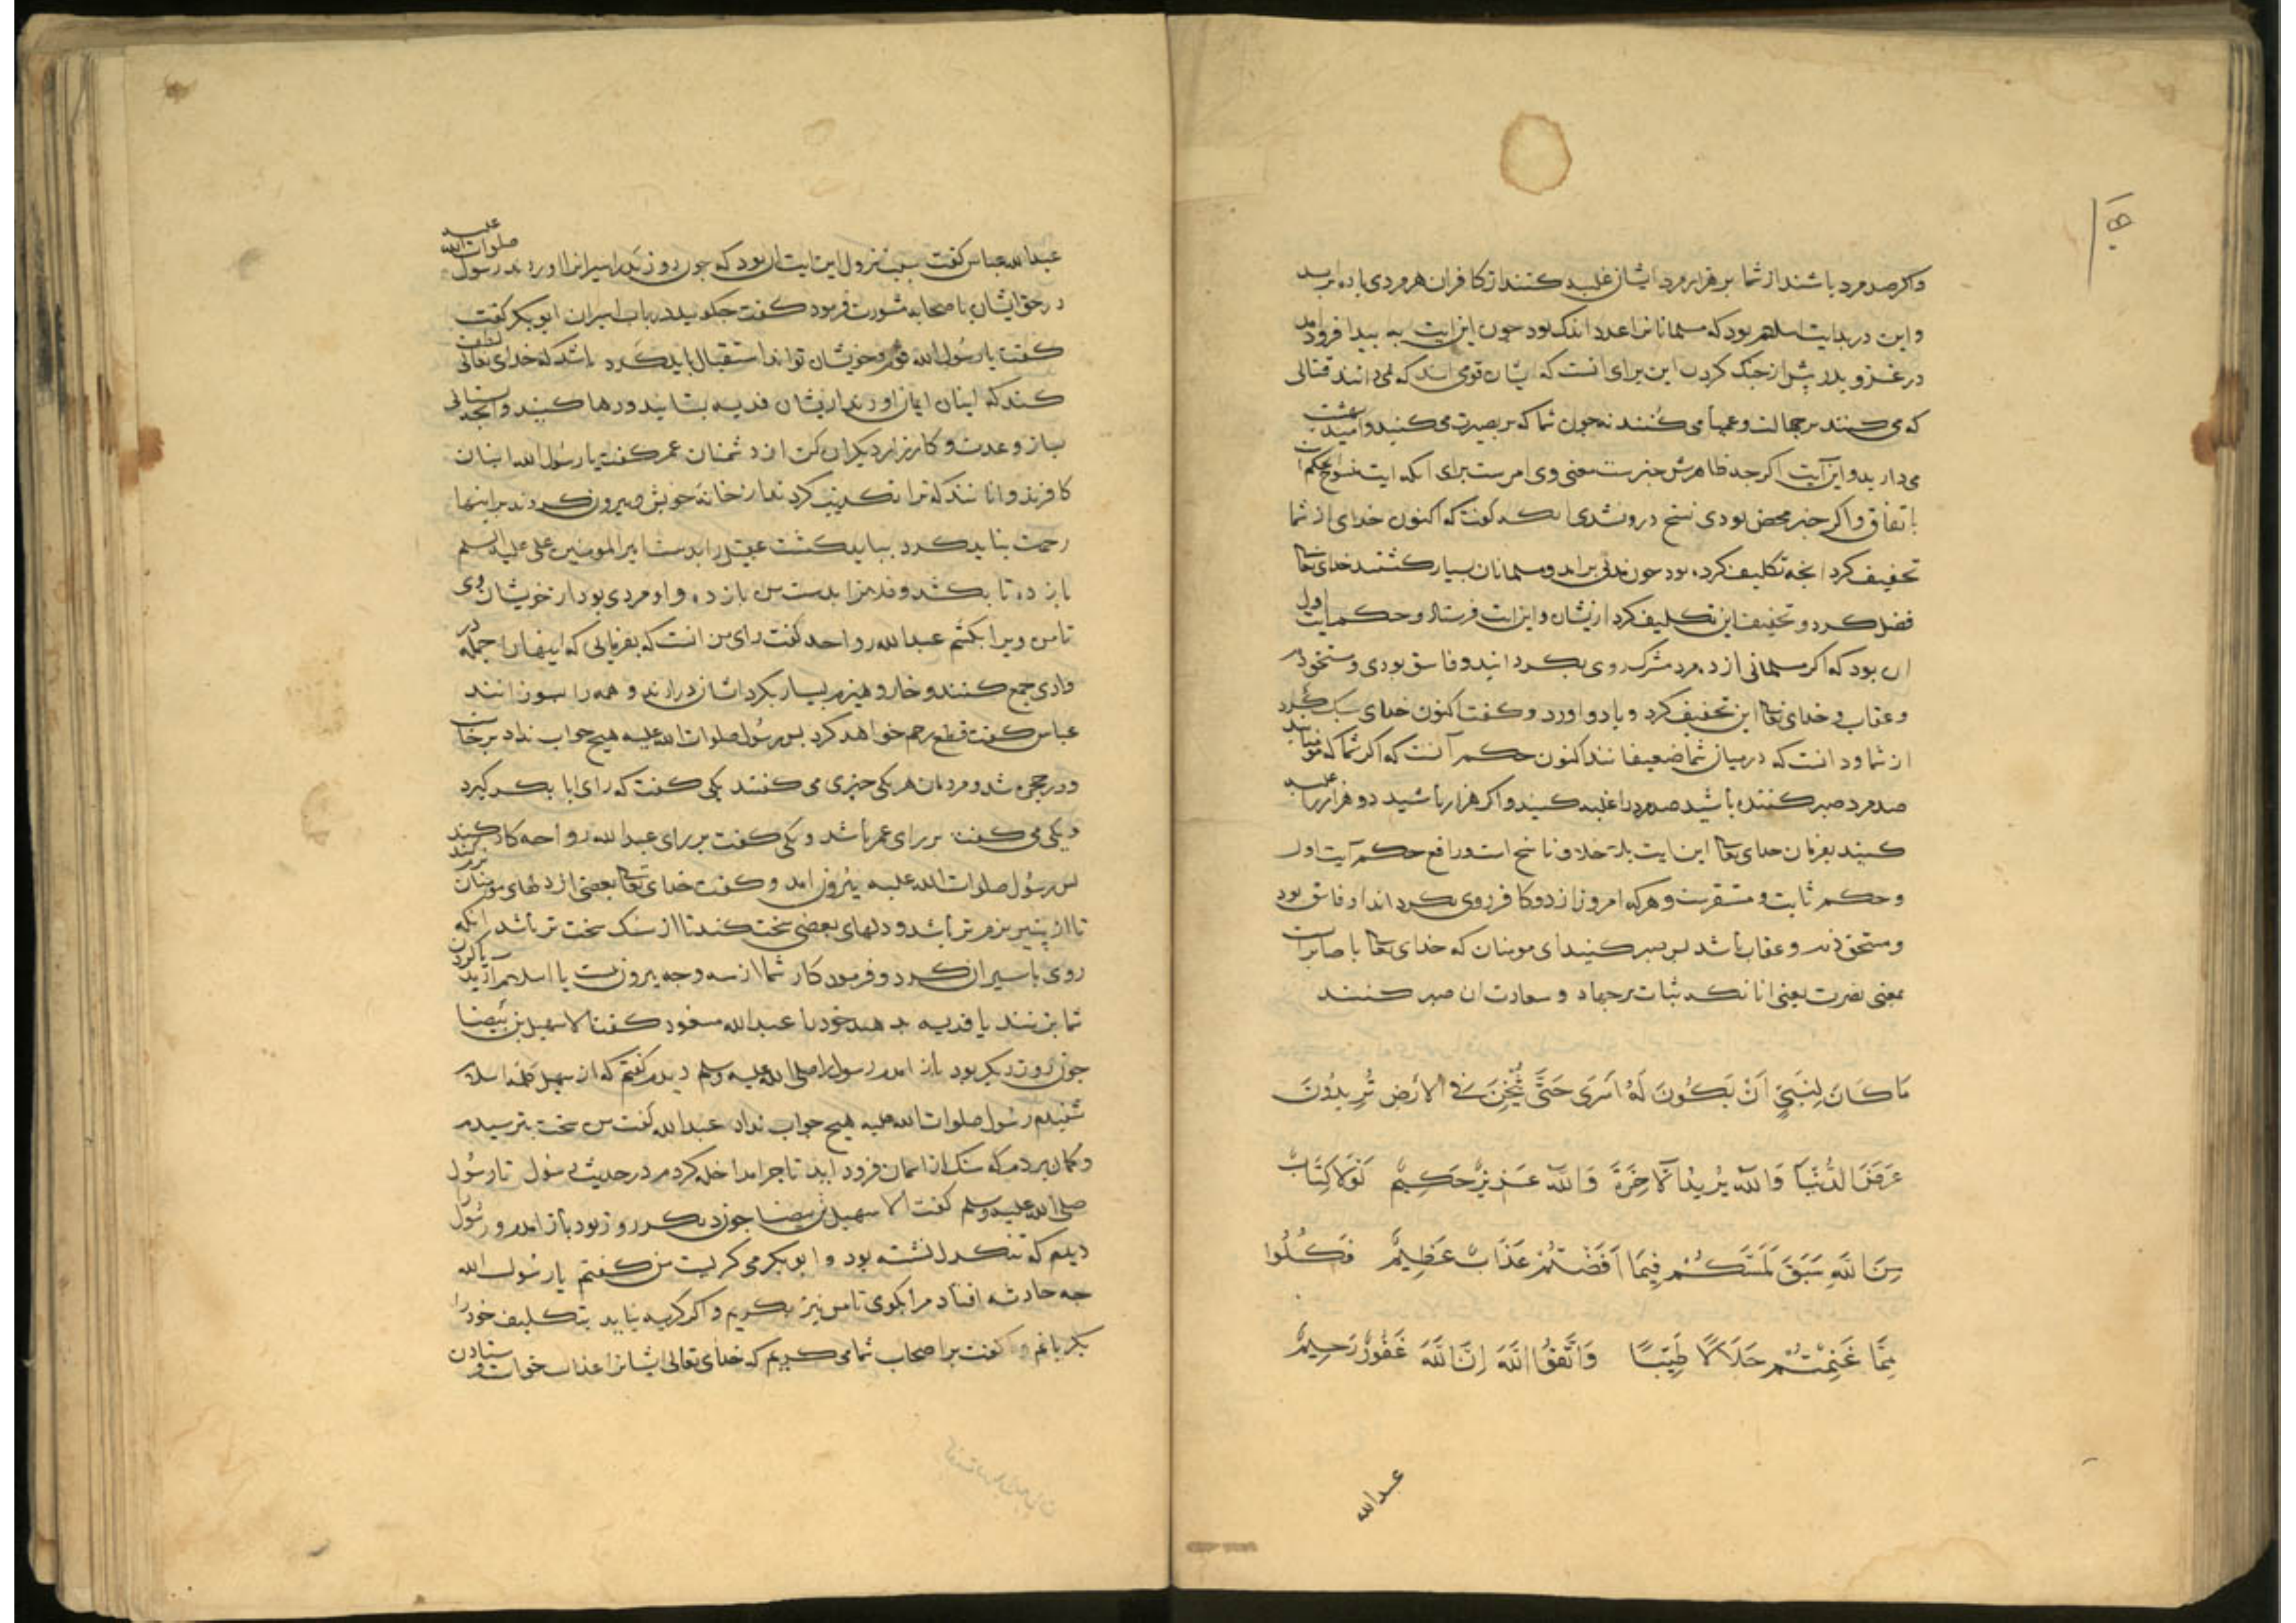 واکر صد مرد باشند از شما بر هزار مرد ایشان غلبه کنند از کافران هر مردی با ده برسد
و این در بدایت اسلام بود که مسلمانانرا عدد اندک بود چون این ایت به بیدا فرود آمد
در غزو بدر پیش از جنک کردن این برای انست که ایشان قومی اند که نمی دانند قتالی
که می کنند بر جهالت و عمیا می کنند نه چون شما که بر بصیرت می کنید و امید بهشت
می دارید و این آیت اکر چه ظاهرش خبرست معنی وی امرست برای انکه ایت منسوخ محکم است
باتفاق و اکر خبر محض بودی نسخ درو نشدی انکه کفت که اکنون خدای از شما
تخفیف کرد انچه تکلیف کرده بود چون مدتی بر امد و مسلمانان بسیار کشتند خدای تعالی
فضل کرد و تخفیف این تکلیف کرد ازیشان و این ایت فرستاد و حکم ایت اول
ان بود که اکر مسلمانی از ده مرد مشرک روی بکردانید و فاسق بودی و مستحق ذم
و عقاب و خدای تعالی این تخفیف کرد و با دو اورد و کفت اکنون خدای سبک کرد
از شما و دانست که در میان شما ضعیفانند اکنون حکم آنست که اکر شما که مومنانید
صد مرد صبر کننده باشید صد مرد را غلبه کنید و اکر هزار باشید دو هزار را غلبه
کنید بفرمان خدای تعالی این ایت بلا خلاف ناسخ است و رافع حکم آیت اول
و حکم ثابت و مستقرست و هرکه امروز از دو کافر روی بکرداند او فاسق بود
و مستحق ذم و عقاب باشد پس صبر کنید ای مومنان که خدای تعالی با صابرانست
بمعنی نصرت یعنی انانکه ثبات بر جهاد و سعادت ان صبر کنند
مَا كَانَ لِنَبِيٍّ اَنْ يَكُونَ لَهُ اَسْرَى حَتَّى يُثْخِنَ فِي الْاَرْضِ تُرِيدُونَ
عَرَضَ الدُّنْيَا وَاللّٰهُ يُرِيدُ الْآخِرَةَ وَاللّٰهُ عَزِيزٌ حَكِيمٌ لَوْلَا كِتَابٌ
مِنَ اللّٰهِ سَبَقَ لَمَسَّكُمْ فِيمَا اَفَضْتُمْ عَذَابٌ عَظِيمٌ فَكُلُوا
مِمَّا غَنِمْتُمْ حَلَالًا طَيِّبًا وَاتَّقُوا اللّٰهَ اِنَّ اللّٰهَ غَفُورٌ رَحِيمٌ
عبدالله
عبدالله عباس کفت سبب نزول این ایت ان بود که چون روز بدر اسیرانرا اوردند رسول صلوات الله علیه
در حق ایشان با صحابه مشورت فرمود کفت چکونید در باب اسیران ابو بکر کفت
کفت یا رسول الله قوم و خویشان تواند استقبال باید کرد باشد که خدای تعالی لطف
کند که اینان ایمان اورند ازیشان فدیه بستانید و رها کنید و انچه بستانی
بساز و عدت و کارزار دیکران کن از دشمنان عمر کفت یا رسول الله اینان
کافرند و انانند که ترا تکذیب کردند از خانه خویش بیرون کردند بر اینها
رحمت نباید کرد بباید کشت عقیل را بدست امیر المومنین علی علیه السلم
باز ده تا بکشد و فلانرا بدست من باز ده و او مردی بود از خویشان وی
تا من ویرا بکشم عبدالله رواحه کفت رای من انست که بفرمائی که اینها را جمله در
وادی جمع کنند و خار و هیزم بسیار بکرد ایشان درارند و همه را بسوزانند
عباس کفت قطع رحم خواهد کرد پس رسول صلوات الله علیه هیچ جواب نداد برخاست
و در حجره شد و مردمان هر یکی چیزی می کفتند یکی کفت که رای ابا بکر کیرد
و یکی می کفت بر رای عمر باشد و یکی کفت بر رای عبدالله رواحه کار کند
پس رسول صلوات الله علیه بیرون امد و کفت خدای تعالی بعضی از دلهای مومنان نرم کند
تا از پنیر نرم تر باشد و دلهای بعضی سخت کند تا از سنک سخت تر باشد انکه
روی با سیران کرد و فرمود کار شما از سه وجه بیرون نیست یا اسلام آرید یا کردن
شما بزنند یا فدیه بدهید خود را عبدالله مسعود کفت الا سهیل بن بیضا
چون روز دیکر بود باز امدم رسول را صلی الله علیه وسلم دیدم کفتم که از سهیل کلمه اسلام
شنیدم رسول صلوات الله علیه هیچ جواب نداد عبدالله کفت من سخت بترسیدم
و کمان بردم که سنک از اسمان فرود اید تا چرا مداخله کردم در حدیث رسول تا رسول
صلی الله علیه وسلم کفت الا سهیل بن بیضا چون دیکر روز بود باز امدم و رسول را
دیدم که تنکدل نشسته بود و ابو بکر می کریست من کفتم یا رسول الله
چه حادثه افتاد مرا بکوی تا من نیز بکریم و اکر کریه نیاید بتکلیف خود را
بکریانم کفت بر اصحاب شما می کریم که خدای تعالی ایشانرا عذاب خواست فرستادن